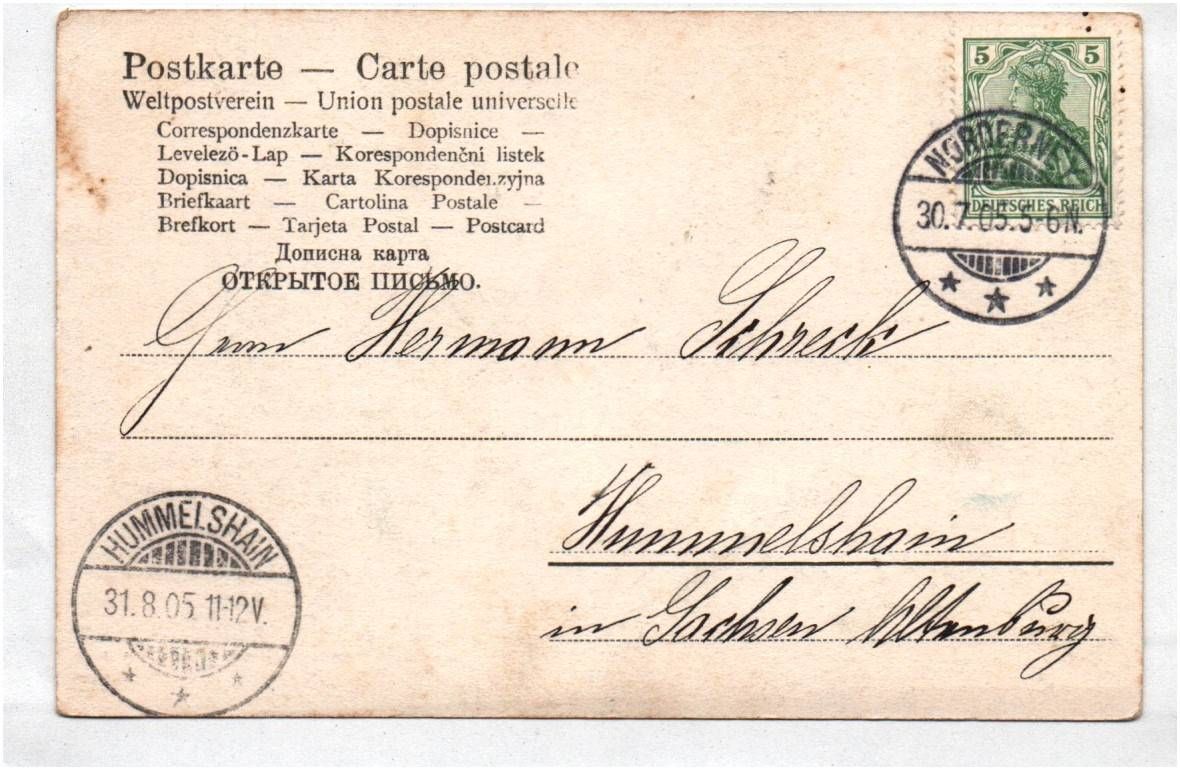 Postkarte — Carte postale
Weltpostverein — Union postale universelle
Correspondenzkarte — Dopisnice —
Levelező-Lap — Korespondenční listek
Dopisnica — Karta Korespondenzyjna
Briefkaart — Cartolina Postale —
Brefkort — Tarjeta Postal — Postcard
Дописна карта
ОТКРЫТОЕ ПИСЬМО.
5 5
DEUTSCHES REICH
NORDERNEY
30.7.05.5-6N.
Herrn Hermann Schreck
Hummelshain
in Sachsen Altenburg
HUMMELSHAIN
31.8.05 11-12V.